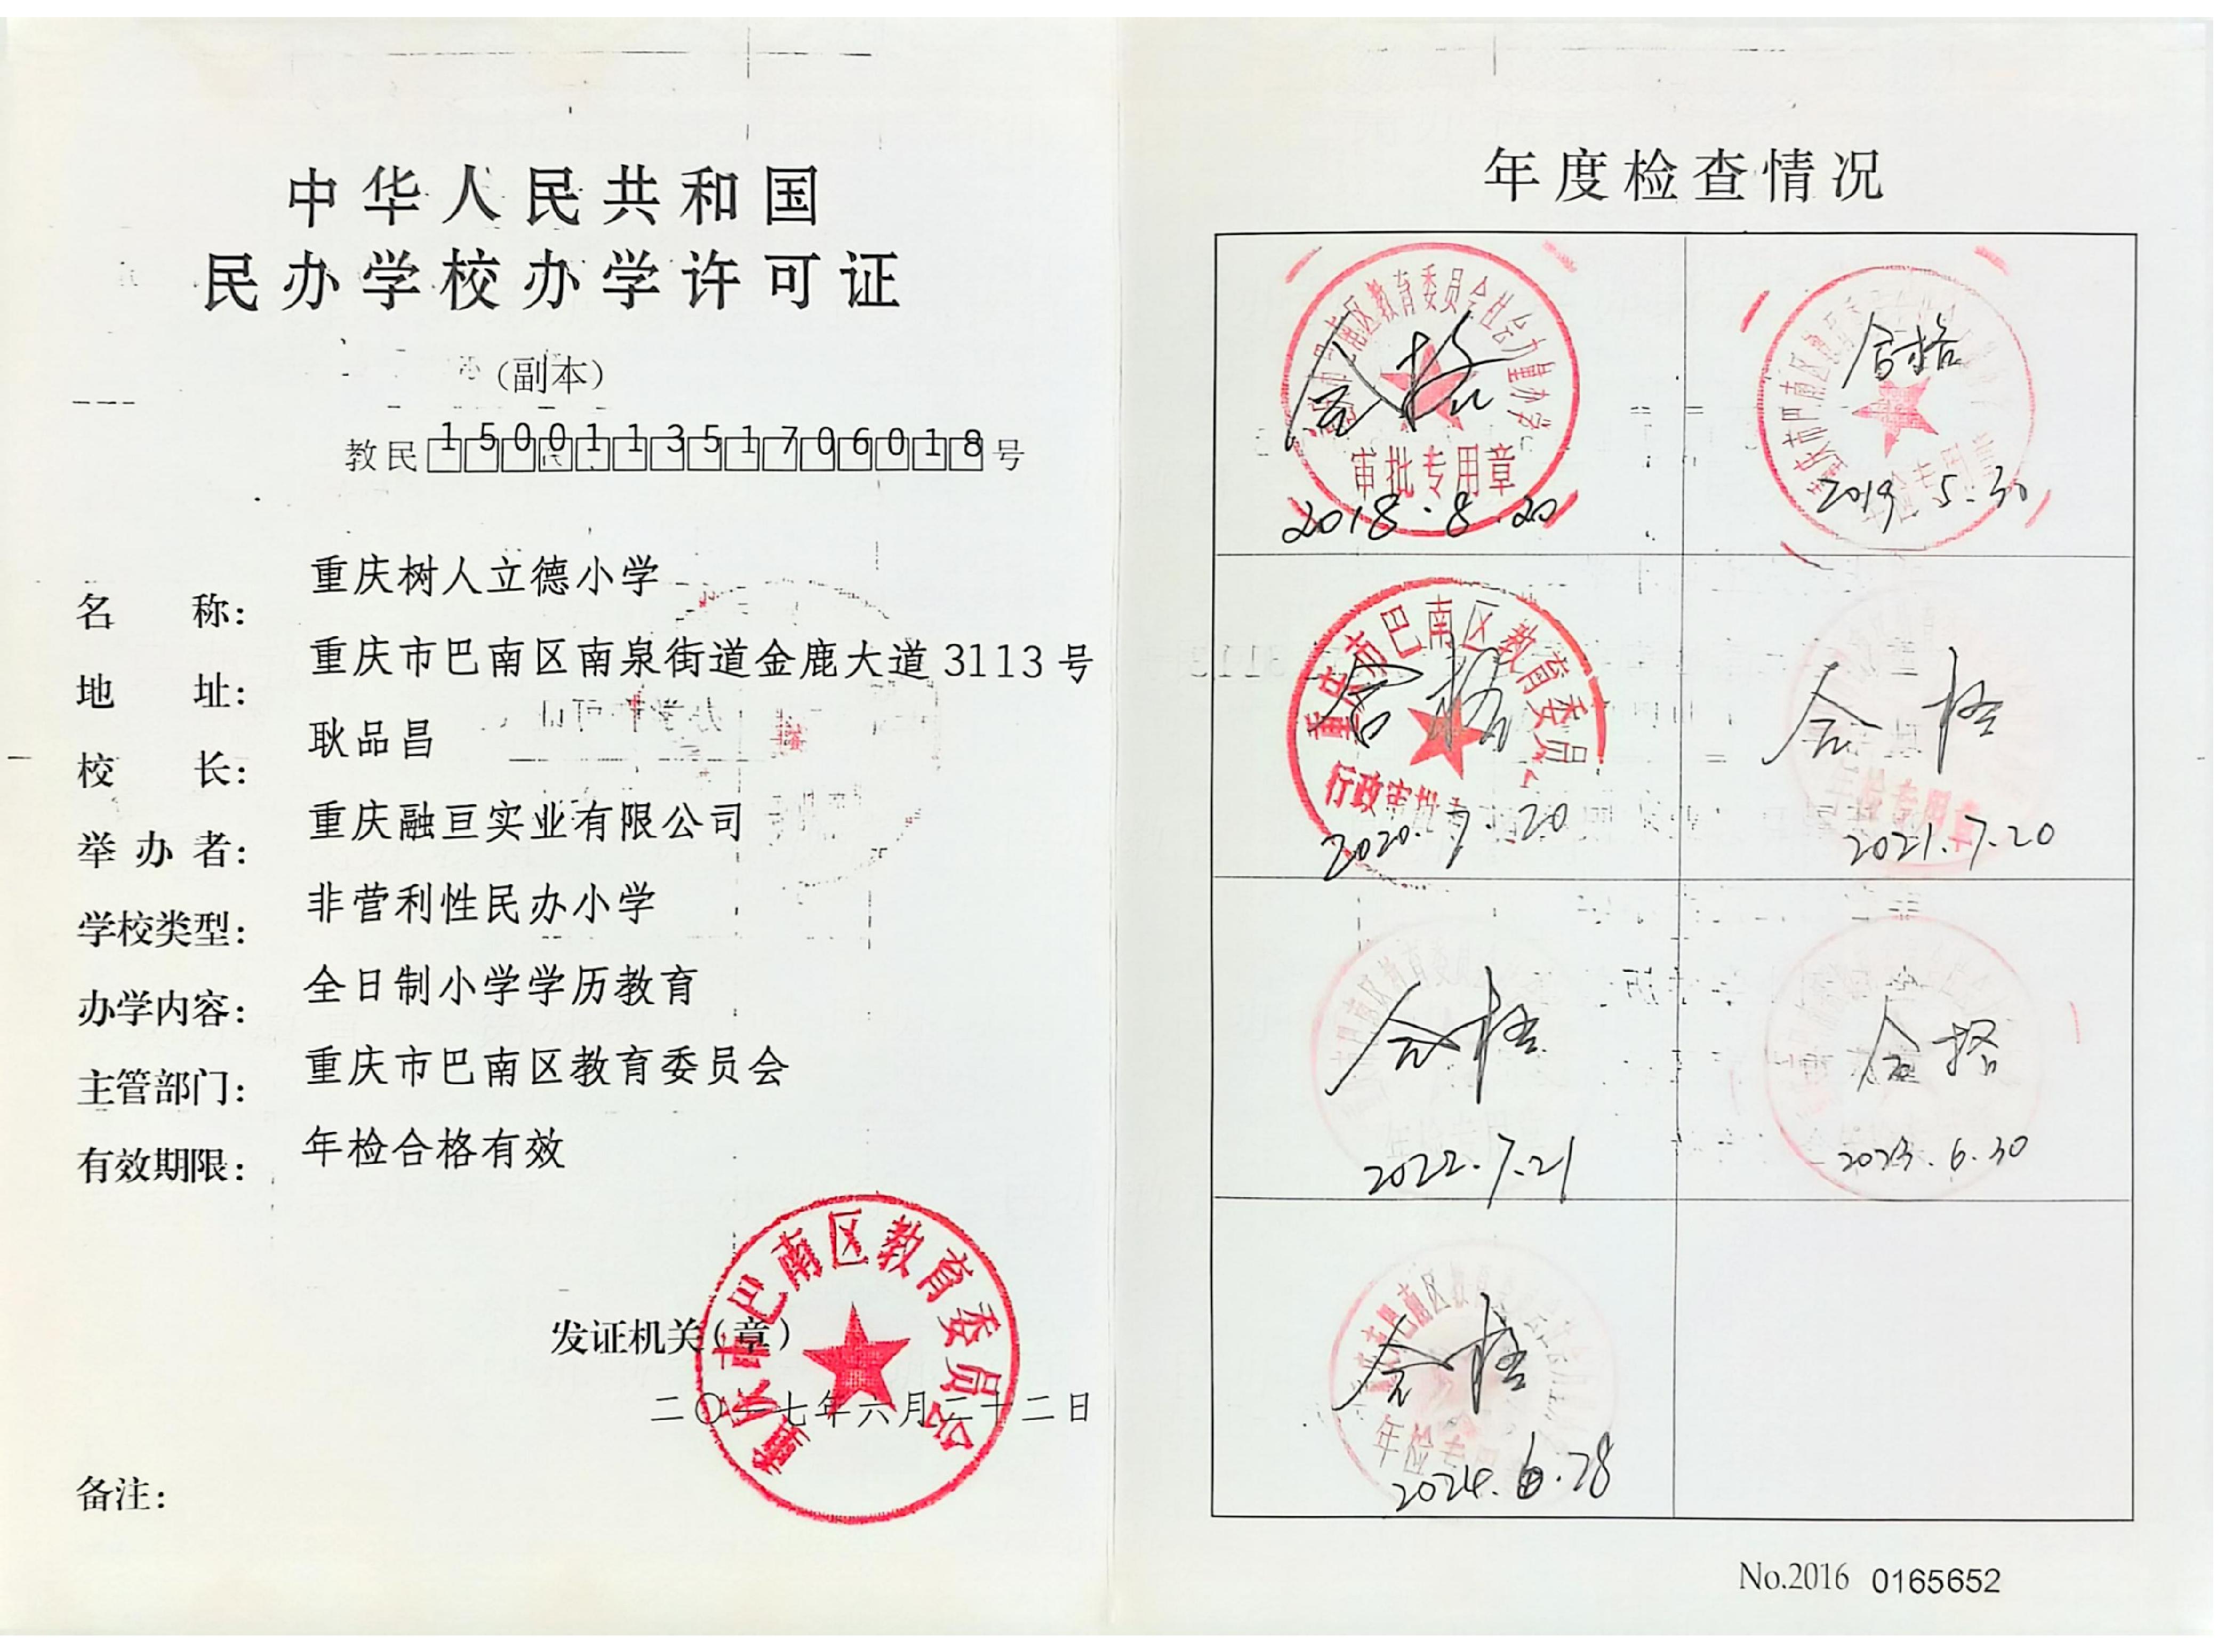 中华人民共和国
民办学校办学许可证
（副本）
教民150011351706018号
名 称：重庆树人立德小学
地 址：重庆市巴南区南泉街道金鹿大道3113号
校 长：耿品昌
举办者：重庆融亘实业有限公司
学校类型：非营利性民办小学
办学内容：全日制小学学历教育
主管部门：重庆市巴南区教育委员会
有效期限：年检合格有效
发证机关（章）
重庆市巴南区教育委员会
二〇一七年六月二十二日
备注：
年度检查情况
合格
审批专用章
2018.8.20
合格
2019.5.30
重庆市巴南区教育委员会
合格
行政审批
2020.7.20
合格
年检专用章
2021.7.20
合格
2022.7.21
合格
2023.6.30
合格
年检专
2024.6.28
No.2016 0165652